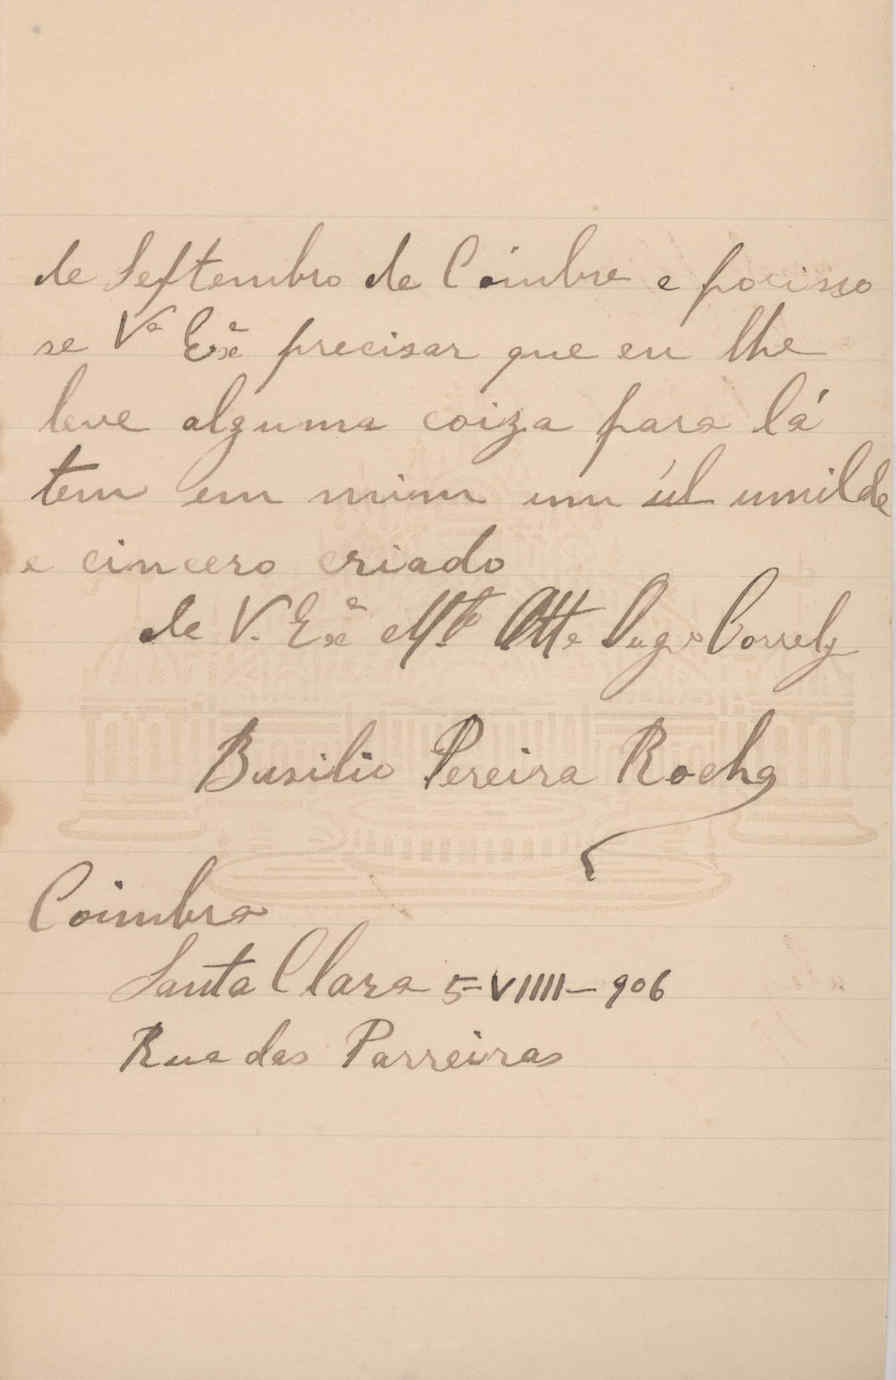 de Septembro de Coimbra e porisso
se Vª Exª precisar que eu lhe
leve alguma coiza para lá
tem em mim um úl umilde
e cincero criado
de V. Exª Mtº Atte
Basilio Pereira Rocha
Coimbra
Santa Clara 5-VIIII-906
Rua das Parreiras